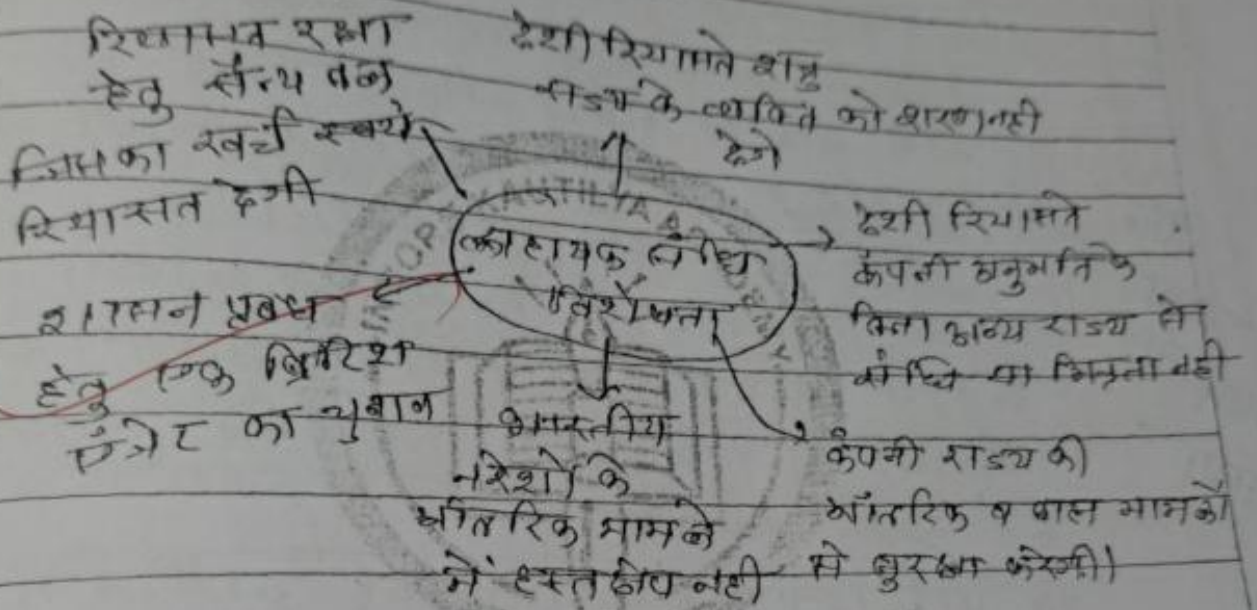 रियासत रक्षा
हेतु सैन्य बल
जिसका खर्च स्वयं
रियासत देगी
देशी रियासते शत्रु
राज्य के व्यक्ति को शरण नही
देंगे
सहायक संधि
विशेषता
देशी रियासते
कंपनी अनुमति के
बिना अन्य राज्य से
संधि या मित्रता नही
शासन प्रबंध
हेतु एक ब्रिटिश
एजेंट का चुनाव
भारतीय
नरेशों के
आंतरिक मामले
में हस्तक्षेप नही
कंपनी राज्य की
आंतरिक व बाह्य मामलों
से सुरक्षा करेगी।
KAUTILYA